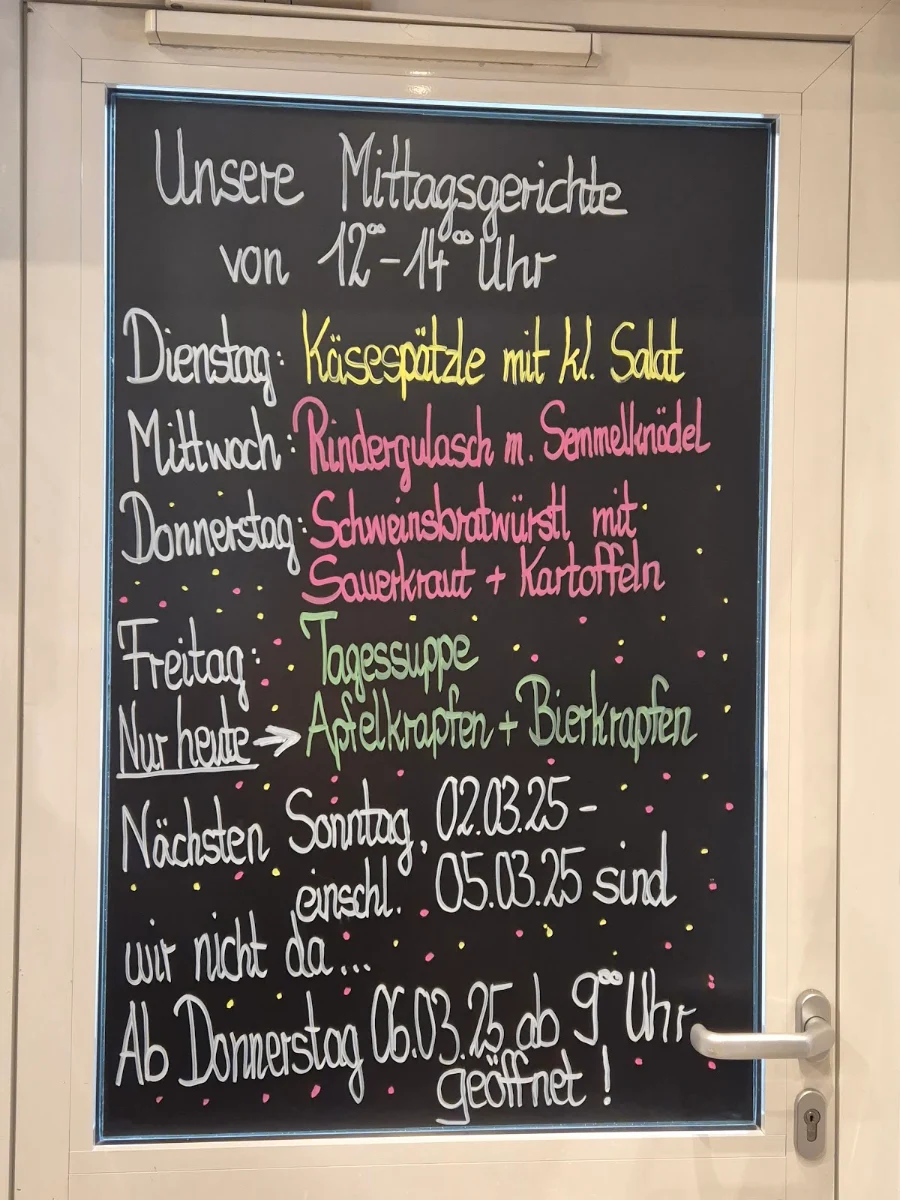 Unsere Mittagsgerichte
von 12⁰⁰-14⁰⁰ Uhr
Dienstag: Käsespätzle mit kl. Salat
Mittwoch: Rindergulasch m. Semmelknödel
Donnerstag: Schweinsbratwürstl mit
Sauerkraut + Kartoffeln
Freitag: Tagessuppe
Nur heute → Apfelkrapfen + Bierkrapfen
Nächsten Sonntag, 02.03.25 -
einschl. 05.03.25 sind
wir nicht da...
Ab Donnerstag 06.03.25 ab 9⁰⁰ Uhr
geöffnet!